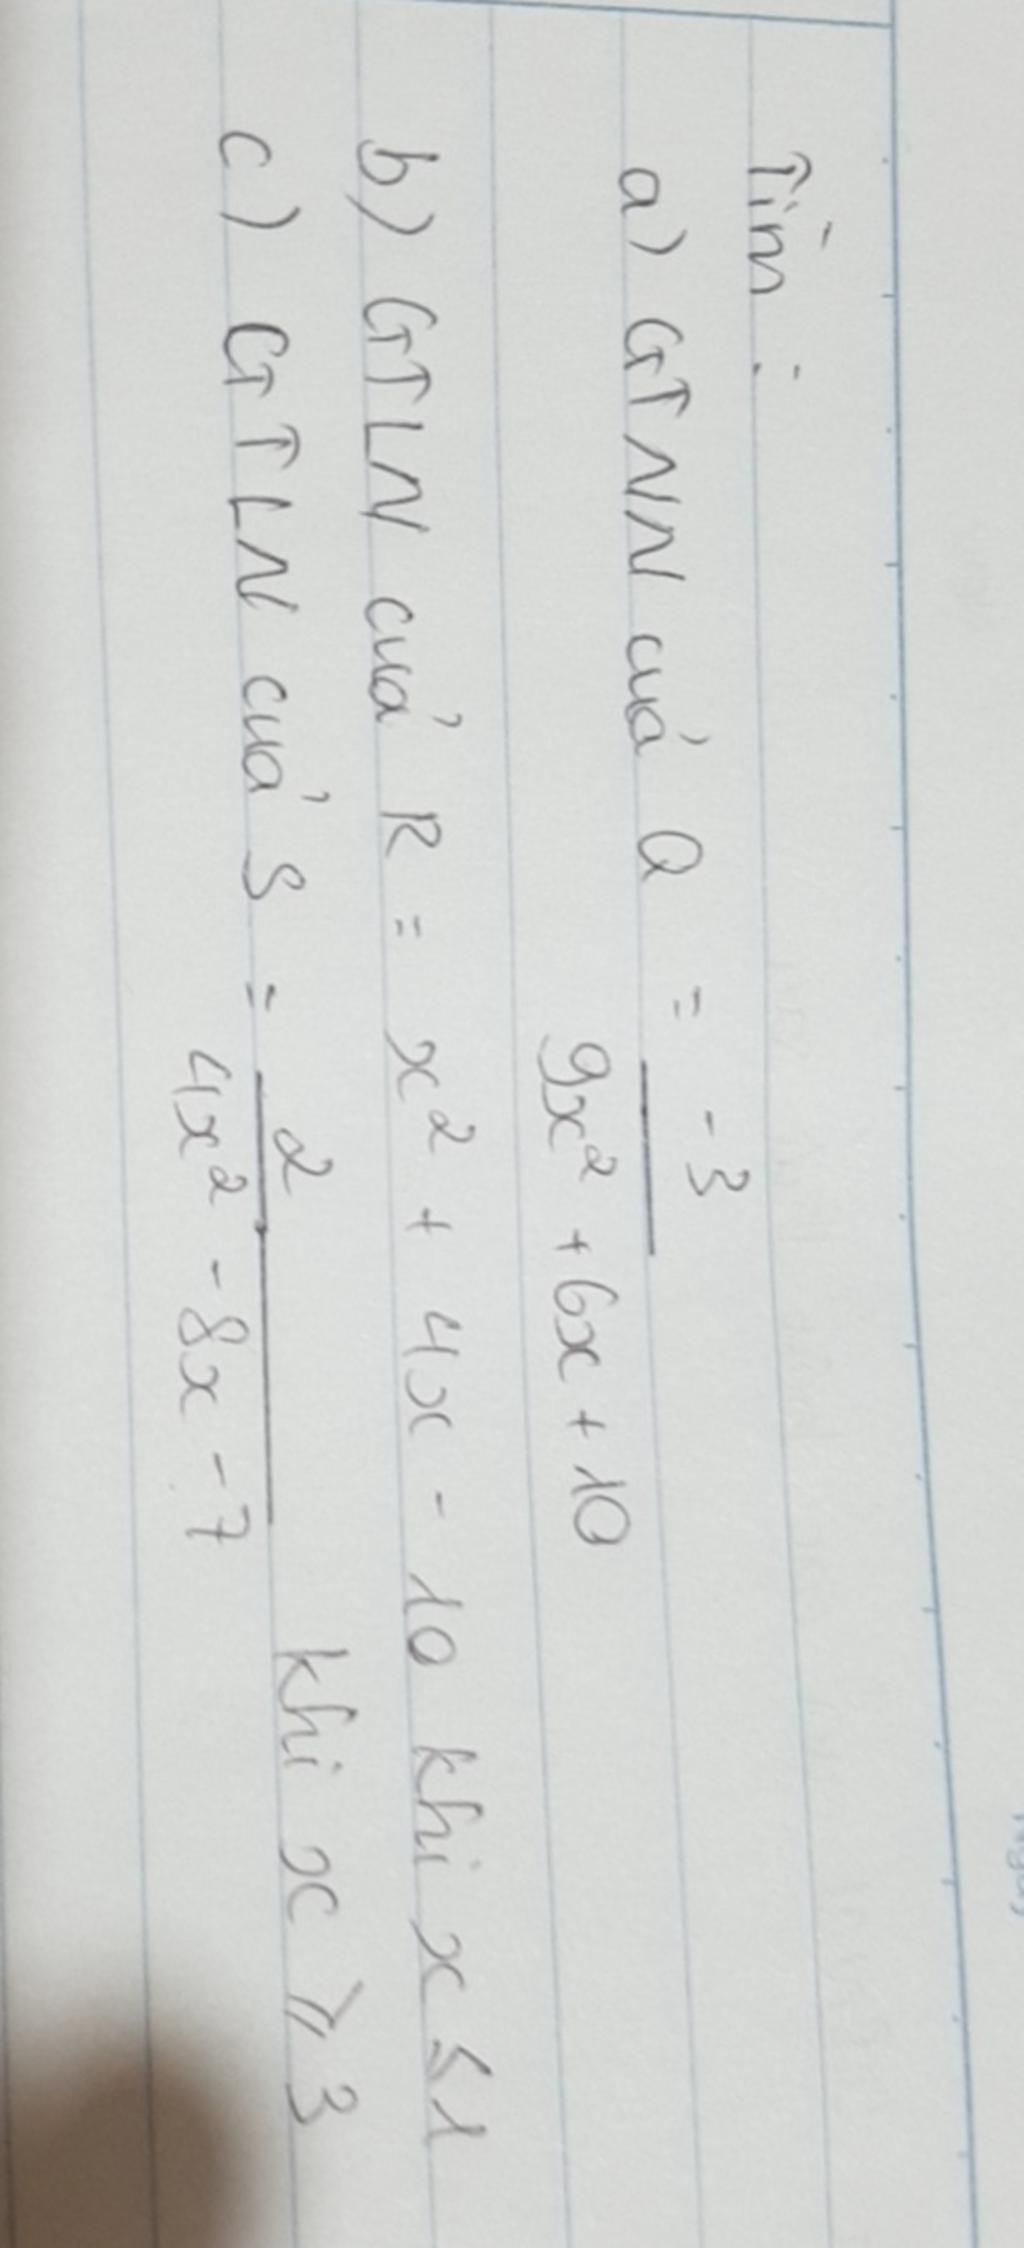 Tìm :
a) GTNN của Q = -3 / 9x² + 6x + 10
b) GTLN của R = x² + 4x - 10 khi x ≤ 1
c) GTLN của S = 2 / 4x² - 8x - 7 khi x ⩾ 3